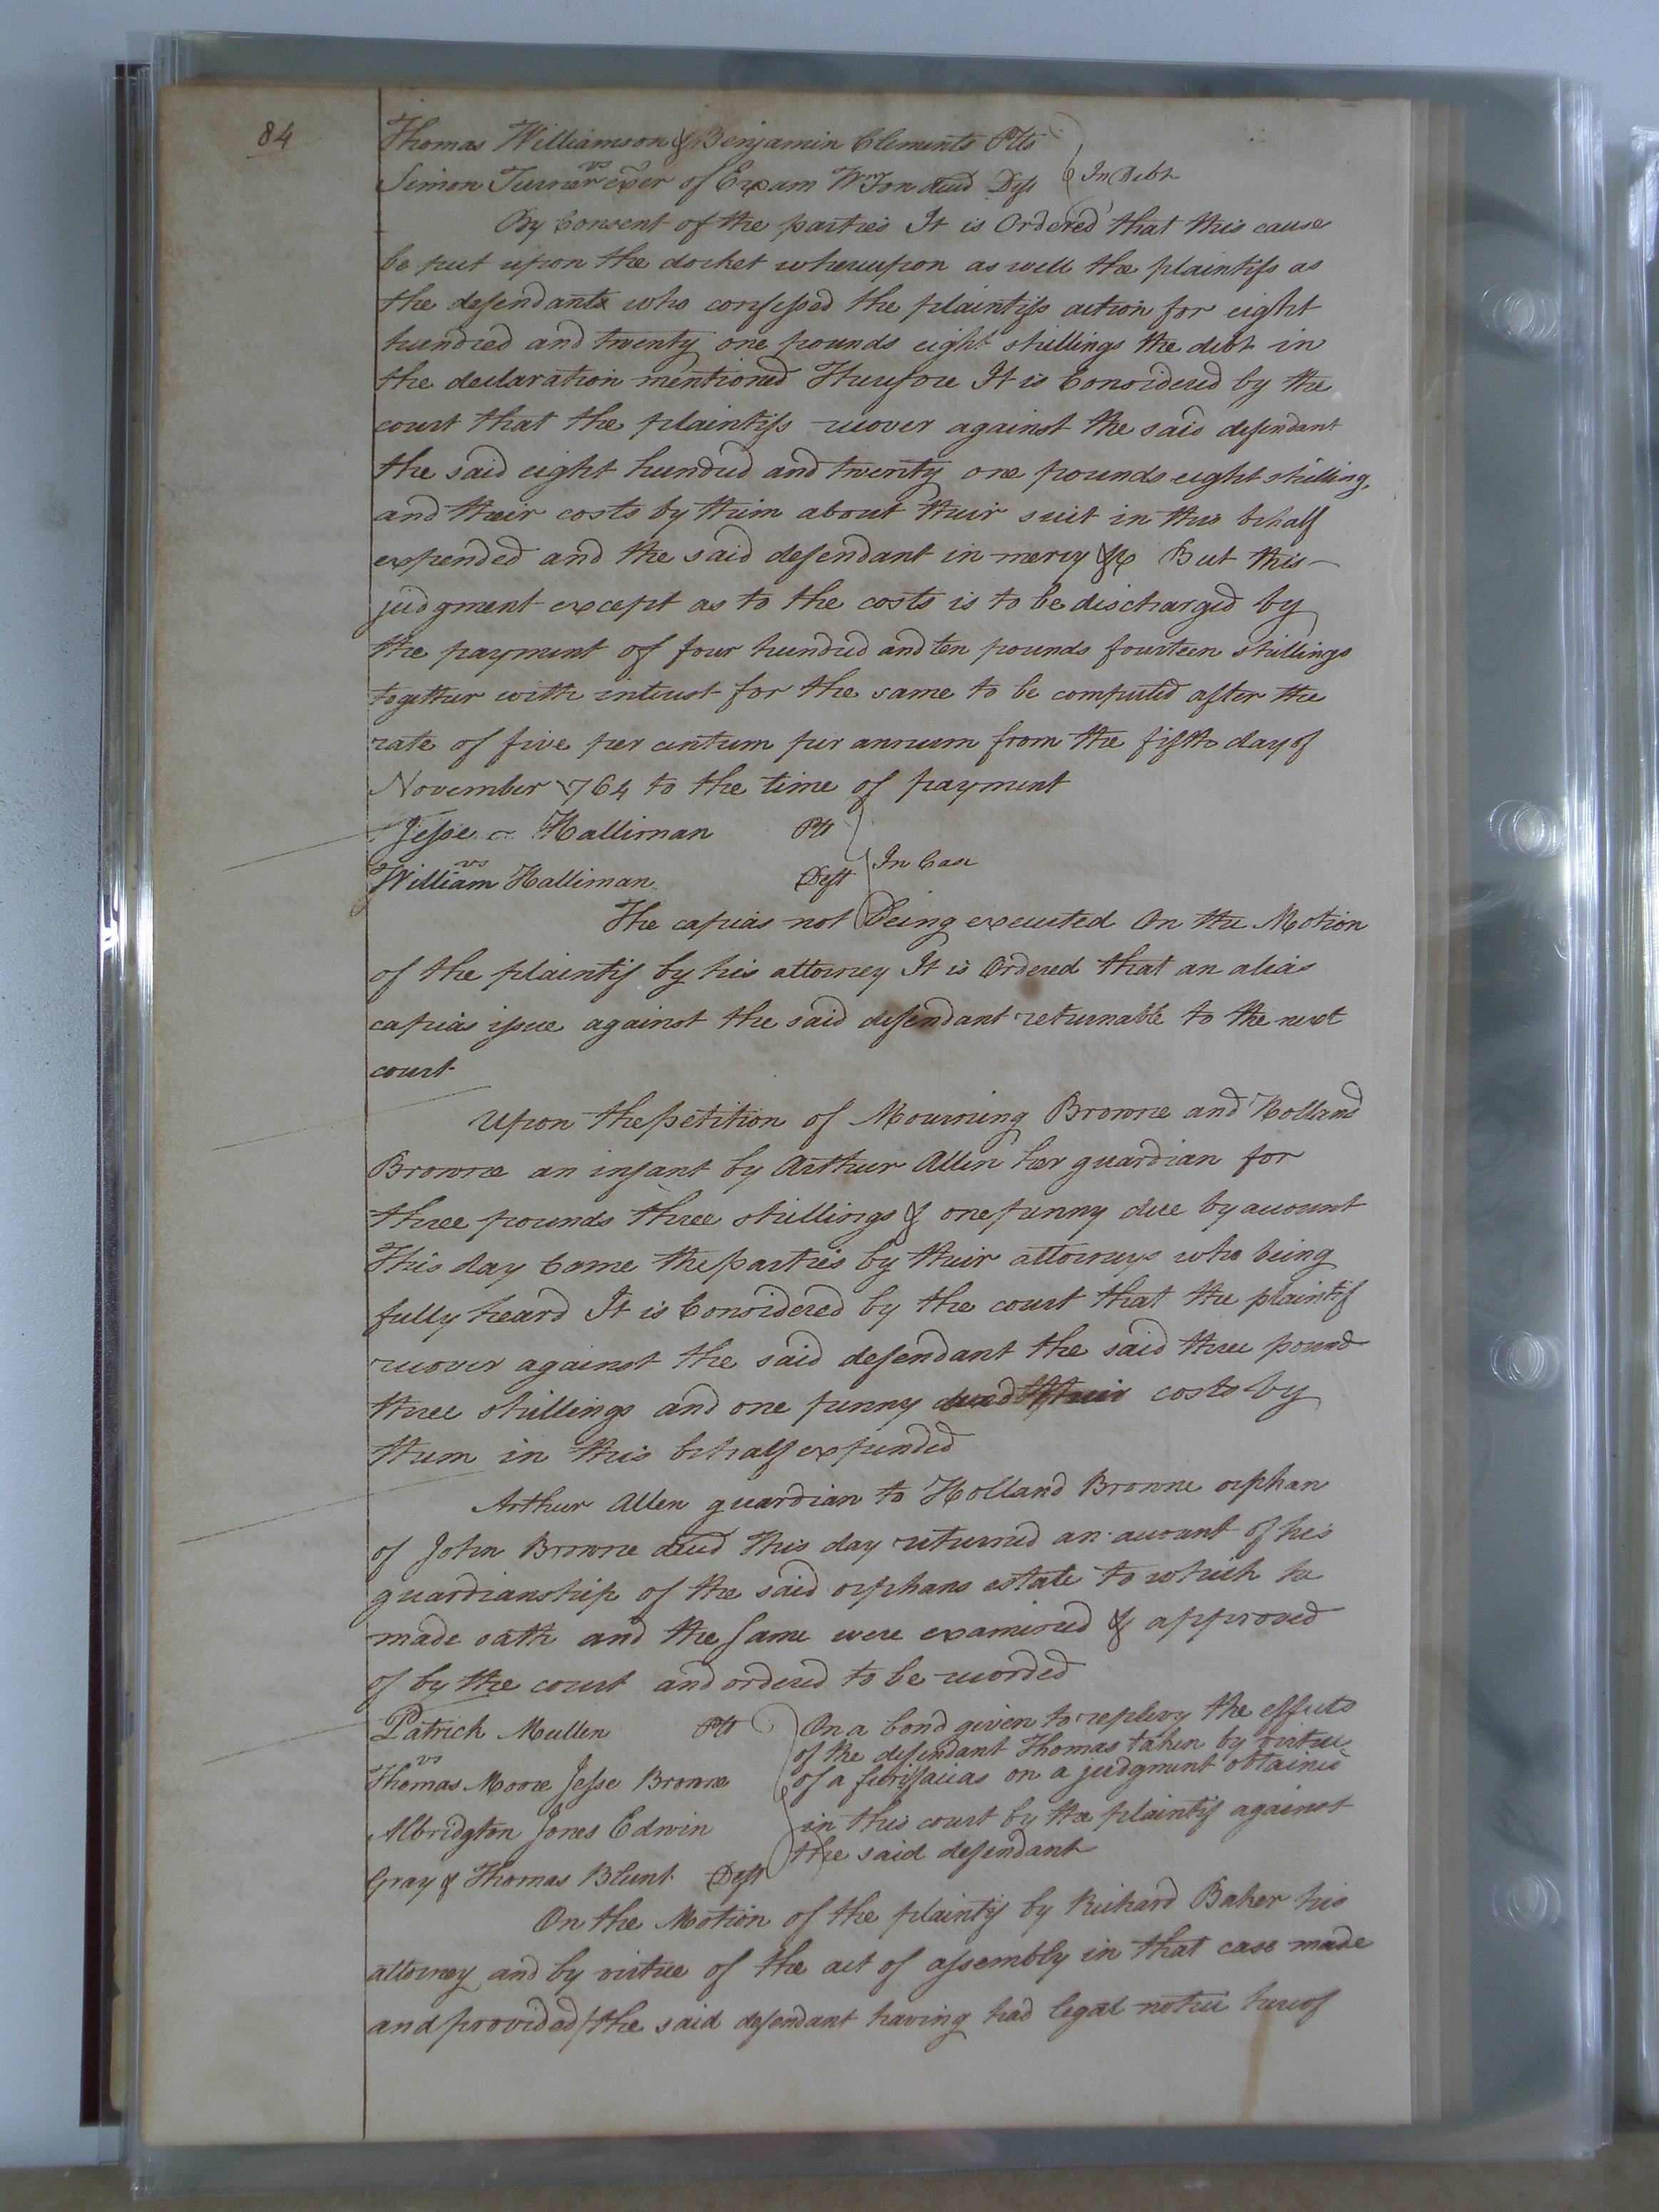 84
Thomas Williamson & Benjamin Clements Plts
vs
Simon Turner exer of Exum Wmson decd Deft
In Debt
By Consent of the parties It is Ordered that this cause
be put upon the docket whereupon as well the plaintifs as
the defendants who confessed the plaintifs action for eight
hundred and twenty one pounds eight shillings the debt in
the declaration mentioned Therefore It is Considered by the
court that the plaintifs recover against the said defendant
the said eight hundred and twenty one pounds eight shilling
and their costs by them about their suit in this behalf
expended and the said defendant in mercy &c But this
judgment except as to the costs is to be discharged by
the payment of four hundred and ten pounds fourteen shillings
together with interest for the same to be computed after the
rate of five per centum per annum from the fifth day of
November 1764 to the time of payment
Jesse Halliman Plt
vs
William Halliman Deft
In Case
The capias not being executed On the Motion
of the plaintif by his attorney It is Ordered that an alias
capias issue against the said defendant returnable to the next
court
Upon the petition of Mourning Browne and Holland
Browne an infant by Arthur Allen her guardian for
three pounds three shillings & one penny due by account
This day Came the parties by their attorneys who being
fully heard It is Considered by the court that the plaintif
recover against the said defendant the said three pound
three shillings and one penny and their costs by
them in this behalf expended
Arthur Allen guardian to Holland Browne orphan
of John Browne decd this day returned an account of his
guardianship of the said orphans estate to which he
made oath and the same were examined & approved
of by the court and ordered to be recorded
Patrick Mullen Plt
vs
Thomas Moore Jesse Browne
Albridgton Jones Edwin
Gray & Thomas Blunt Deft
On a bond given to replevy the effects
of the defendant Thomas taken by virtue
of a fierifacias on a judgment obtained
in this court by the plaintif against
the said defendant
On the Motion of the plaintif by Richard Baker his
attorney and by virtue of the act of assembly in that case made
and provided / the said defendant having had legal notice hereof